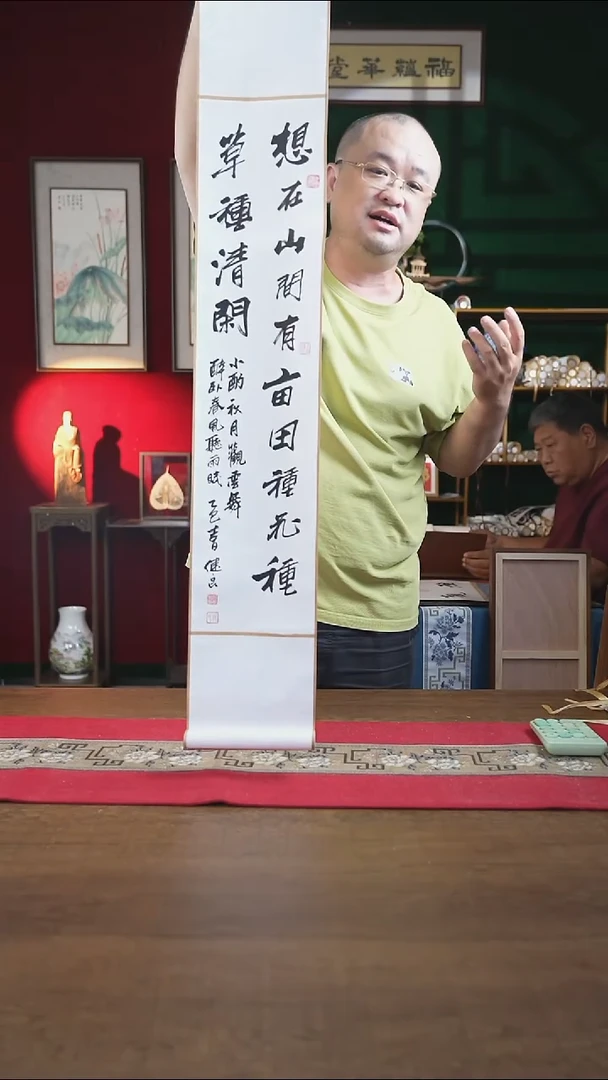 福蘊華堂
想在山間有亩田種花種
草種清閑
小酌秋月觀雲舞
醉卧春風聽雨眠 乙巳